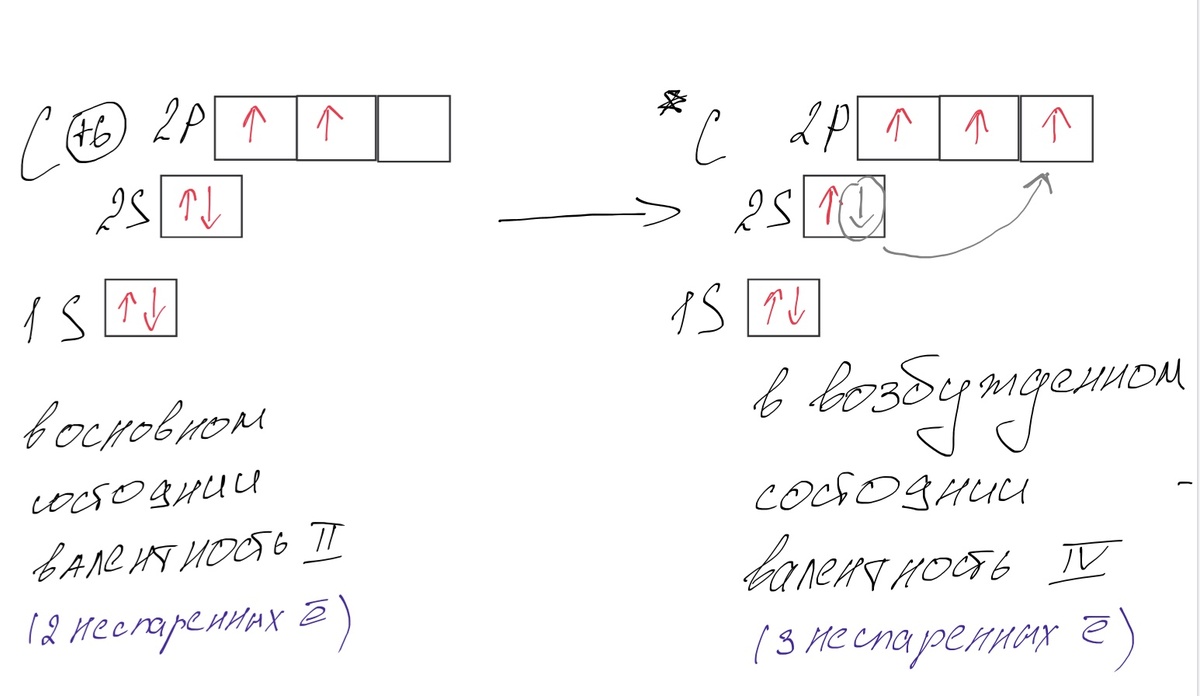 C +6 2P ↑ ↑
2S ↑↓
1S ↑↓
в основном
состоянии
валентность II
(2 неспаренных ē)
*C 2P ↑ ↑ ↑
2S ↑↓
1S ↑↓
в возбужденном
состоянии -
валентность IV
(3 неспаренных ē)